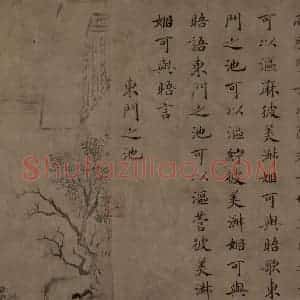 可以漚麻彼美淑姬可與晤歌東
門之池可以漚紵彼美淑姬可與
晤語東門之池可以漚菅彼美淑
姬可與晤言
東門之池
ShufaZiliao.COM